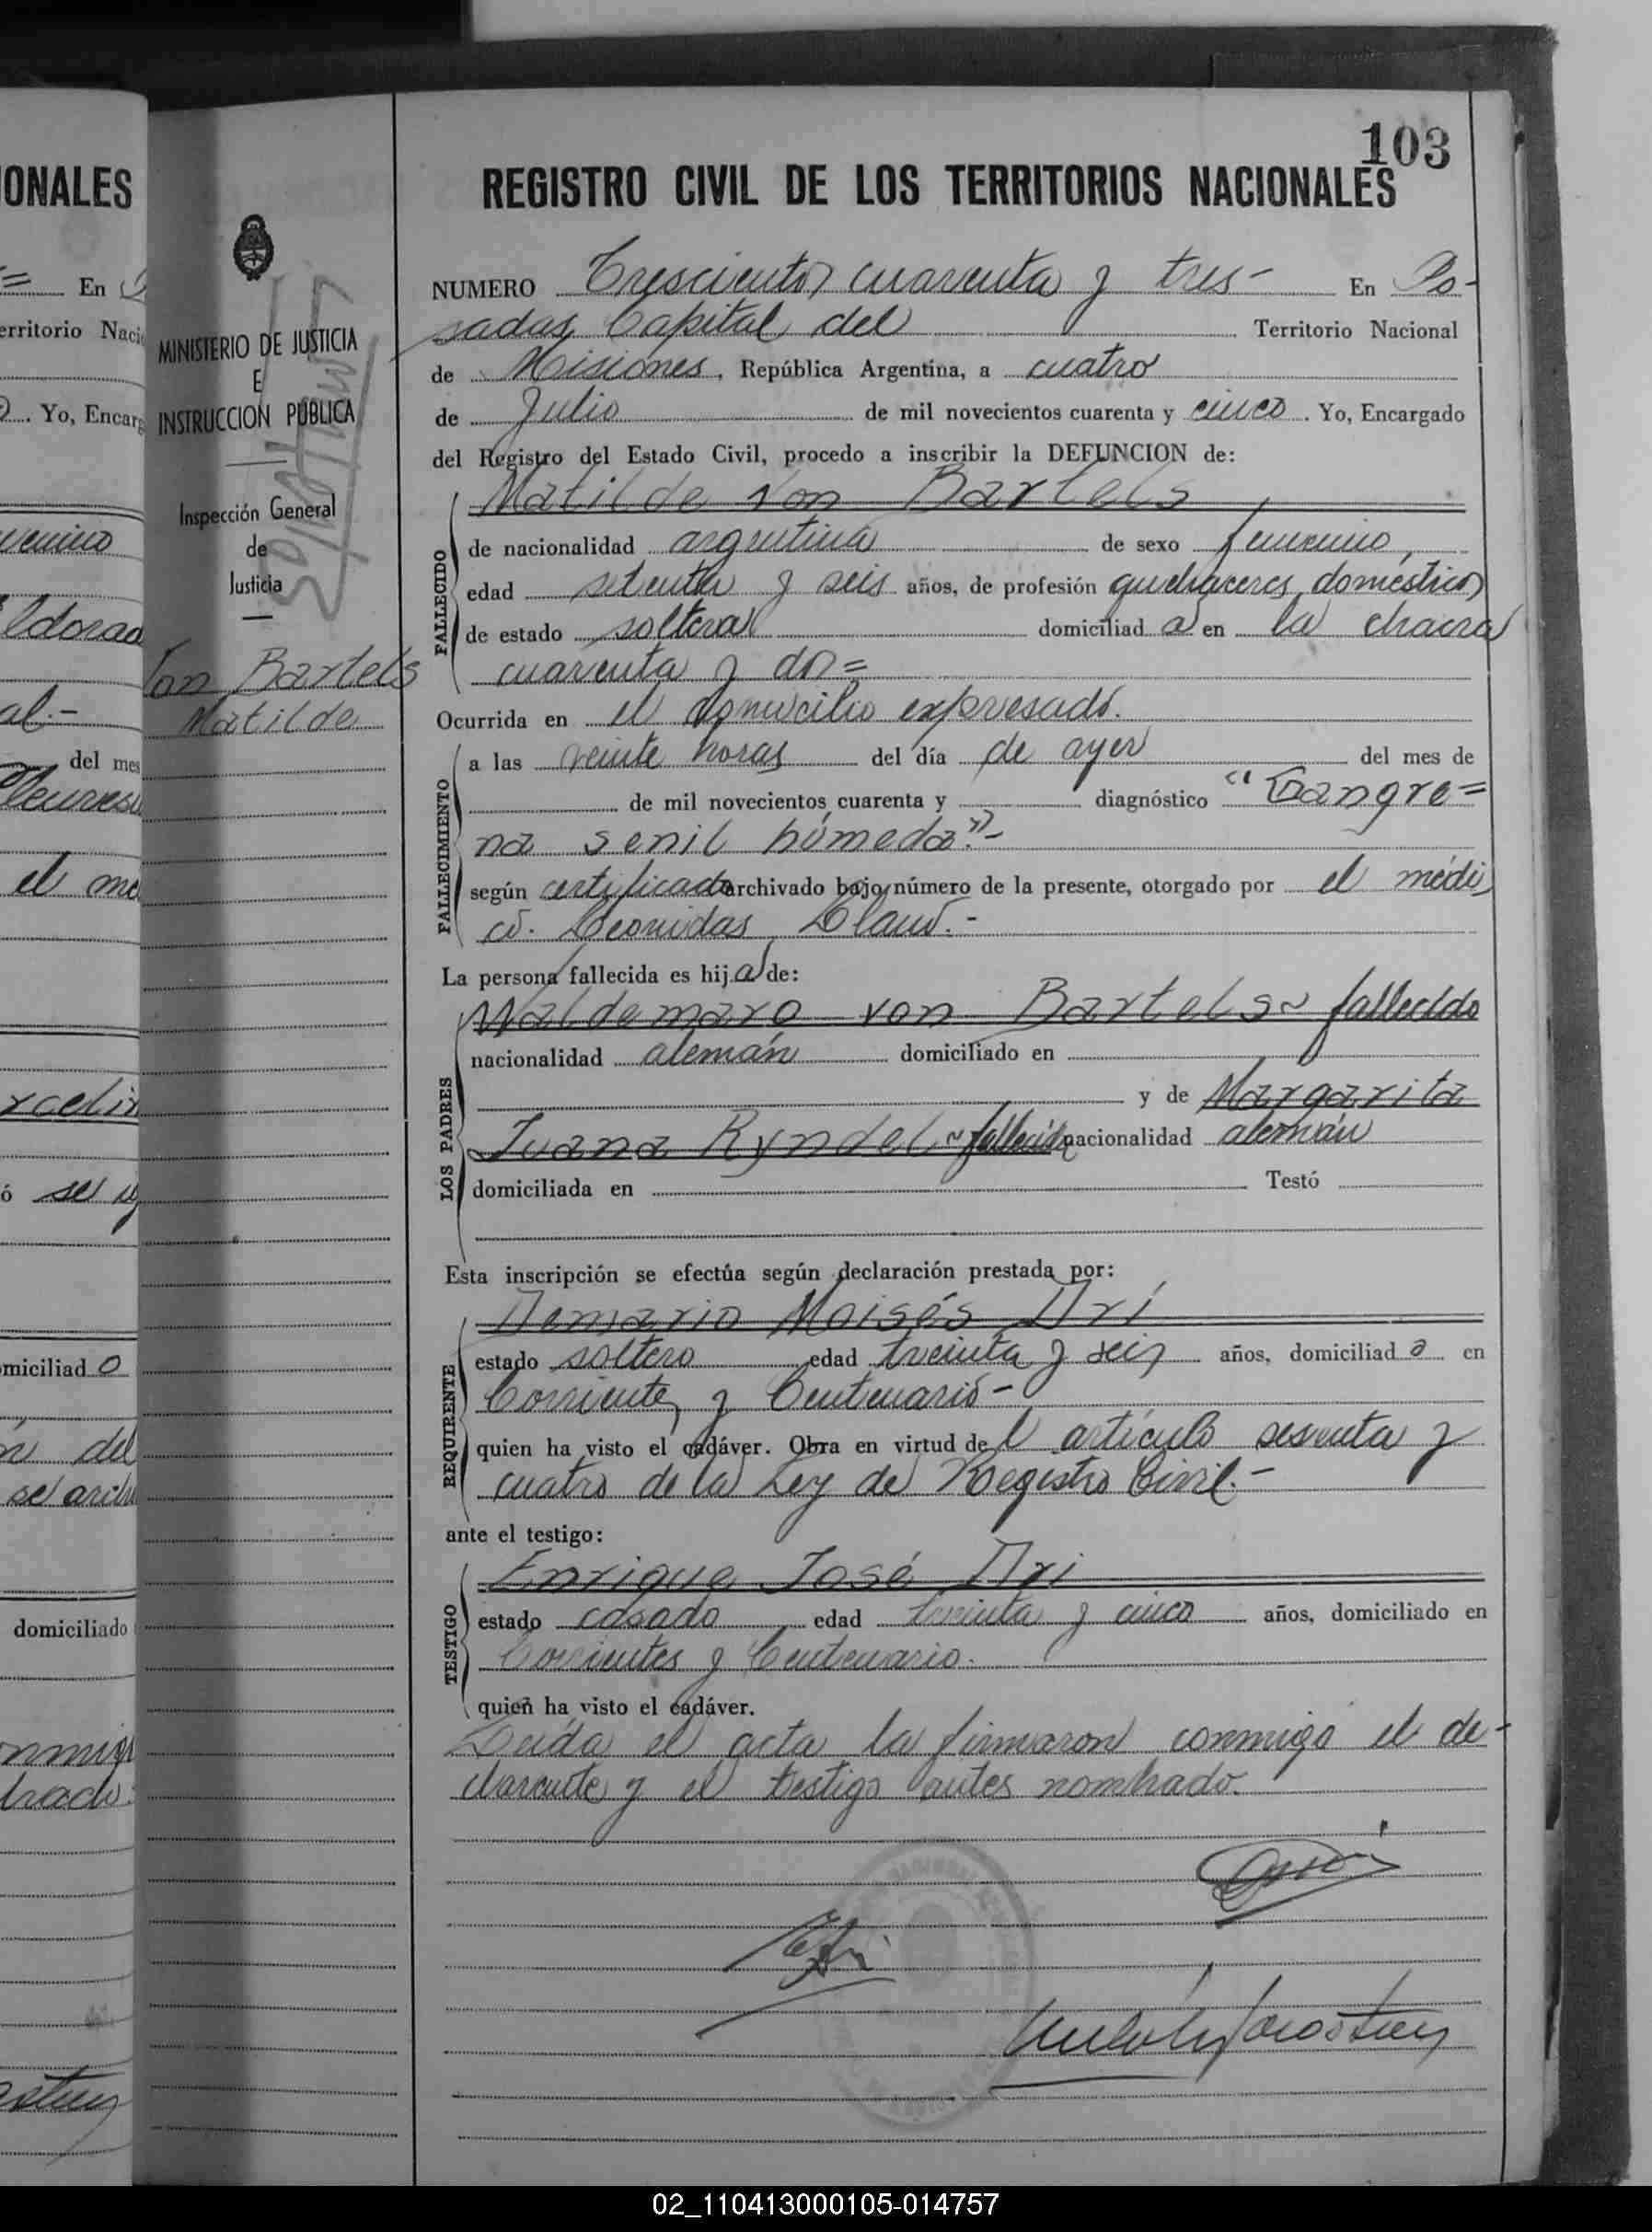 103
ONALES
REGISTRO CIVIL DE LOS TERRITORIOS NACIONALES
NUMERO Trescientos cuarenta y tres- En Po-
sadas, Capital del Territorio Nacional
de Misiones, República Argentina, a cuatro
de Julio de mil novecientos cuarenta y cinco. Yo, Encargado
del Registro del Estado Civil, procedo a inscribir la DEFUNCION de:
Matilde Von Bartels
FALLECIDO
de nacionalidad argentina de sexo femenino,
edad setenta y seis años, de profesión quehaceres domésticos
de estado soltera domiciliad a en la chacra
cuarenta y dos=
Ocurrida en el domicilio expresado.
FALLECIMIENTO
a las veinte horas del día de ayer del mes de
de mil novecientos cuarenta y diagnóstico "Gangre=
na senil húmeda".-
según certificado archivado bajo número de la presente, otorgado por el médi
co. Leonidas
La persona fallecida es hij a de:
LOS PADRES
Waldemaro von Bartels~ fallecido
nacionalidad alemán domiciliado en
y de Margarita
Juana Ryndel~fallecida nacionalidad alemán
domiciliada en Testó
Esta inscripción se efectúa según declaración prestada por:
REQUIRENTE
Demario Moisés Dri
estado soltero edad treinta y seis años, domiciliad o en
Corrientes y Centenario-
quien ha visto el cadáver. Obra en virtud del artículo sesenta y
cuatro de la Ley de Registro Civil.-
ante el testigo:
TESTIGO
Enrique José Dri
estado casado edad treinta y cinco años, domiciliado en
Corrientes y Centenario.
quien ha visto el cadáver.
Leída el acta la firmaron conmigo el de-
clarante y el testigo antes nombrado.
MINISTERIO DE JUSTICIA
E
INSTRUCCION PUBLICA
Inspección General
de
Justicia
Von Bartels
Matilde
En
erritorio Naci
. Yo, Encarg
ldorad
al.-
del mes
el me
rcelin
ó se
miciliad o
n del
domiciliado
02_110413000105-014757